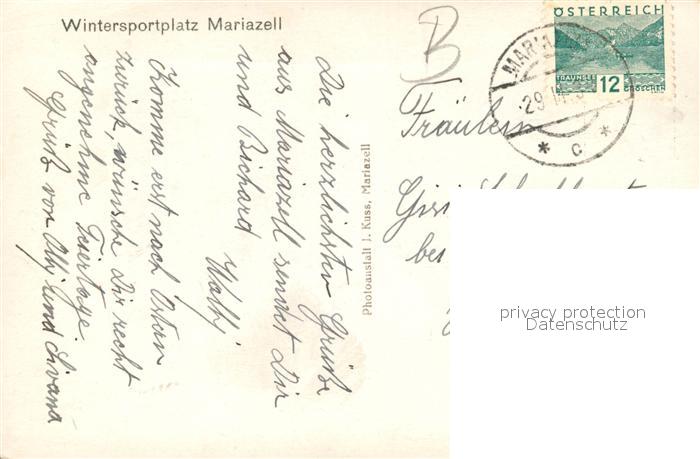 Wintersportplatz Mariazell
Die herzlichsten Grüße
aus Mariazell sendet Dir
und Richard
Wally
Komme erst nach Ostern
zurück, wünsche Dir recht
angenehme Feiertage.
Grüße von Olly und
Photoanstalt J. Kuss, Mariazell
B
ÖSTERREICH
TRAUNSEE
12
GROSCHEN
MARIA
29
* C *
Fräulein
privacy protection
Datenschutz